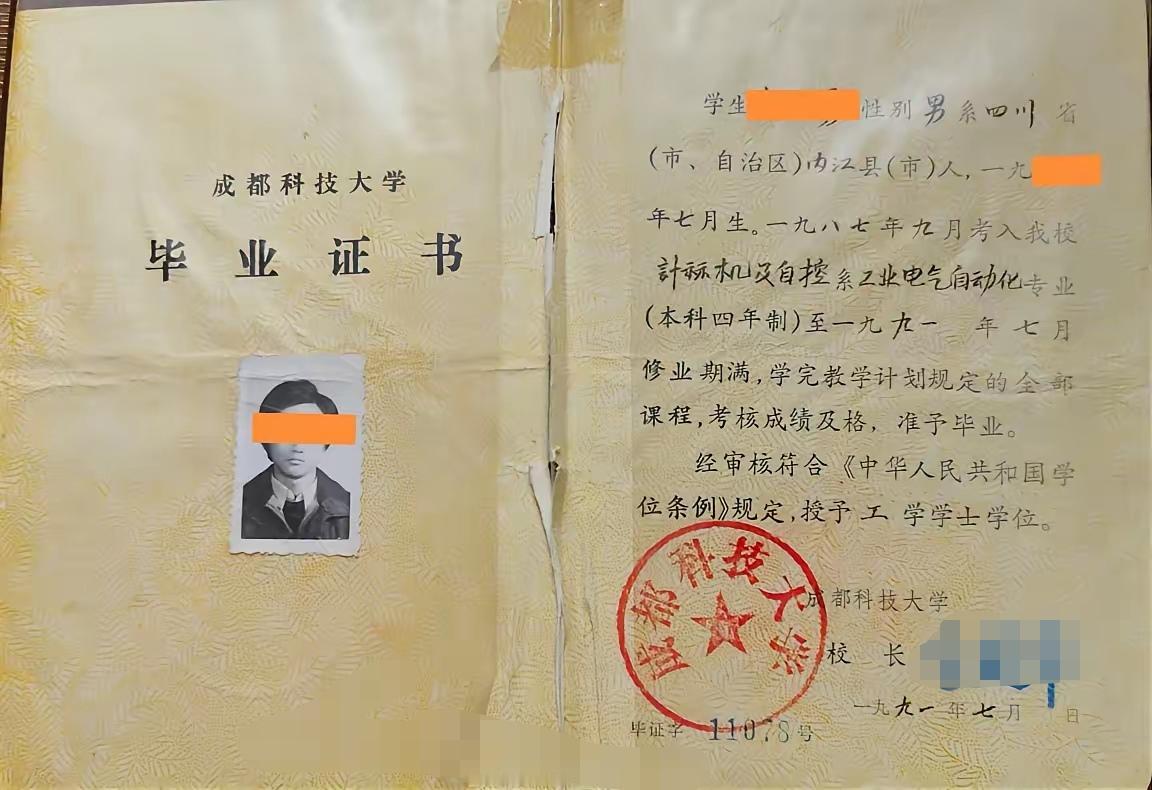 成都科技大学
毕业证书
学生 性别男系四川省
(市、自治区)内江县(市)人,一九
年七月生。一九八七年九月考入我校
計祘机及自控系工业电气自动化专业
(本科四年制)至一九九一 年七月
修业期满,学完教学计划规定的全部
课程,考核成绩及格,准予毕业。
经审核符合《中华人民共和国学
位条例》规定,授予工学学士学位。
成都科技大学
成都科技大学
校长
一九九一年七月 日
毕证字 11078号